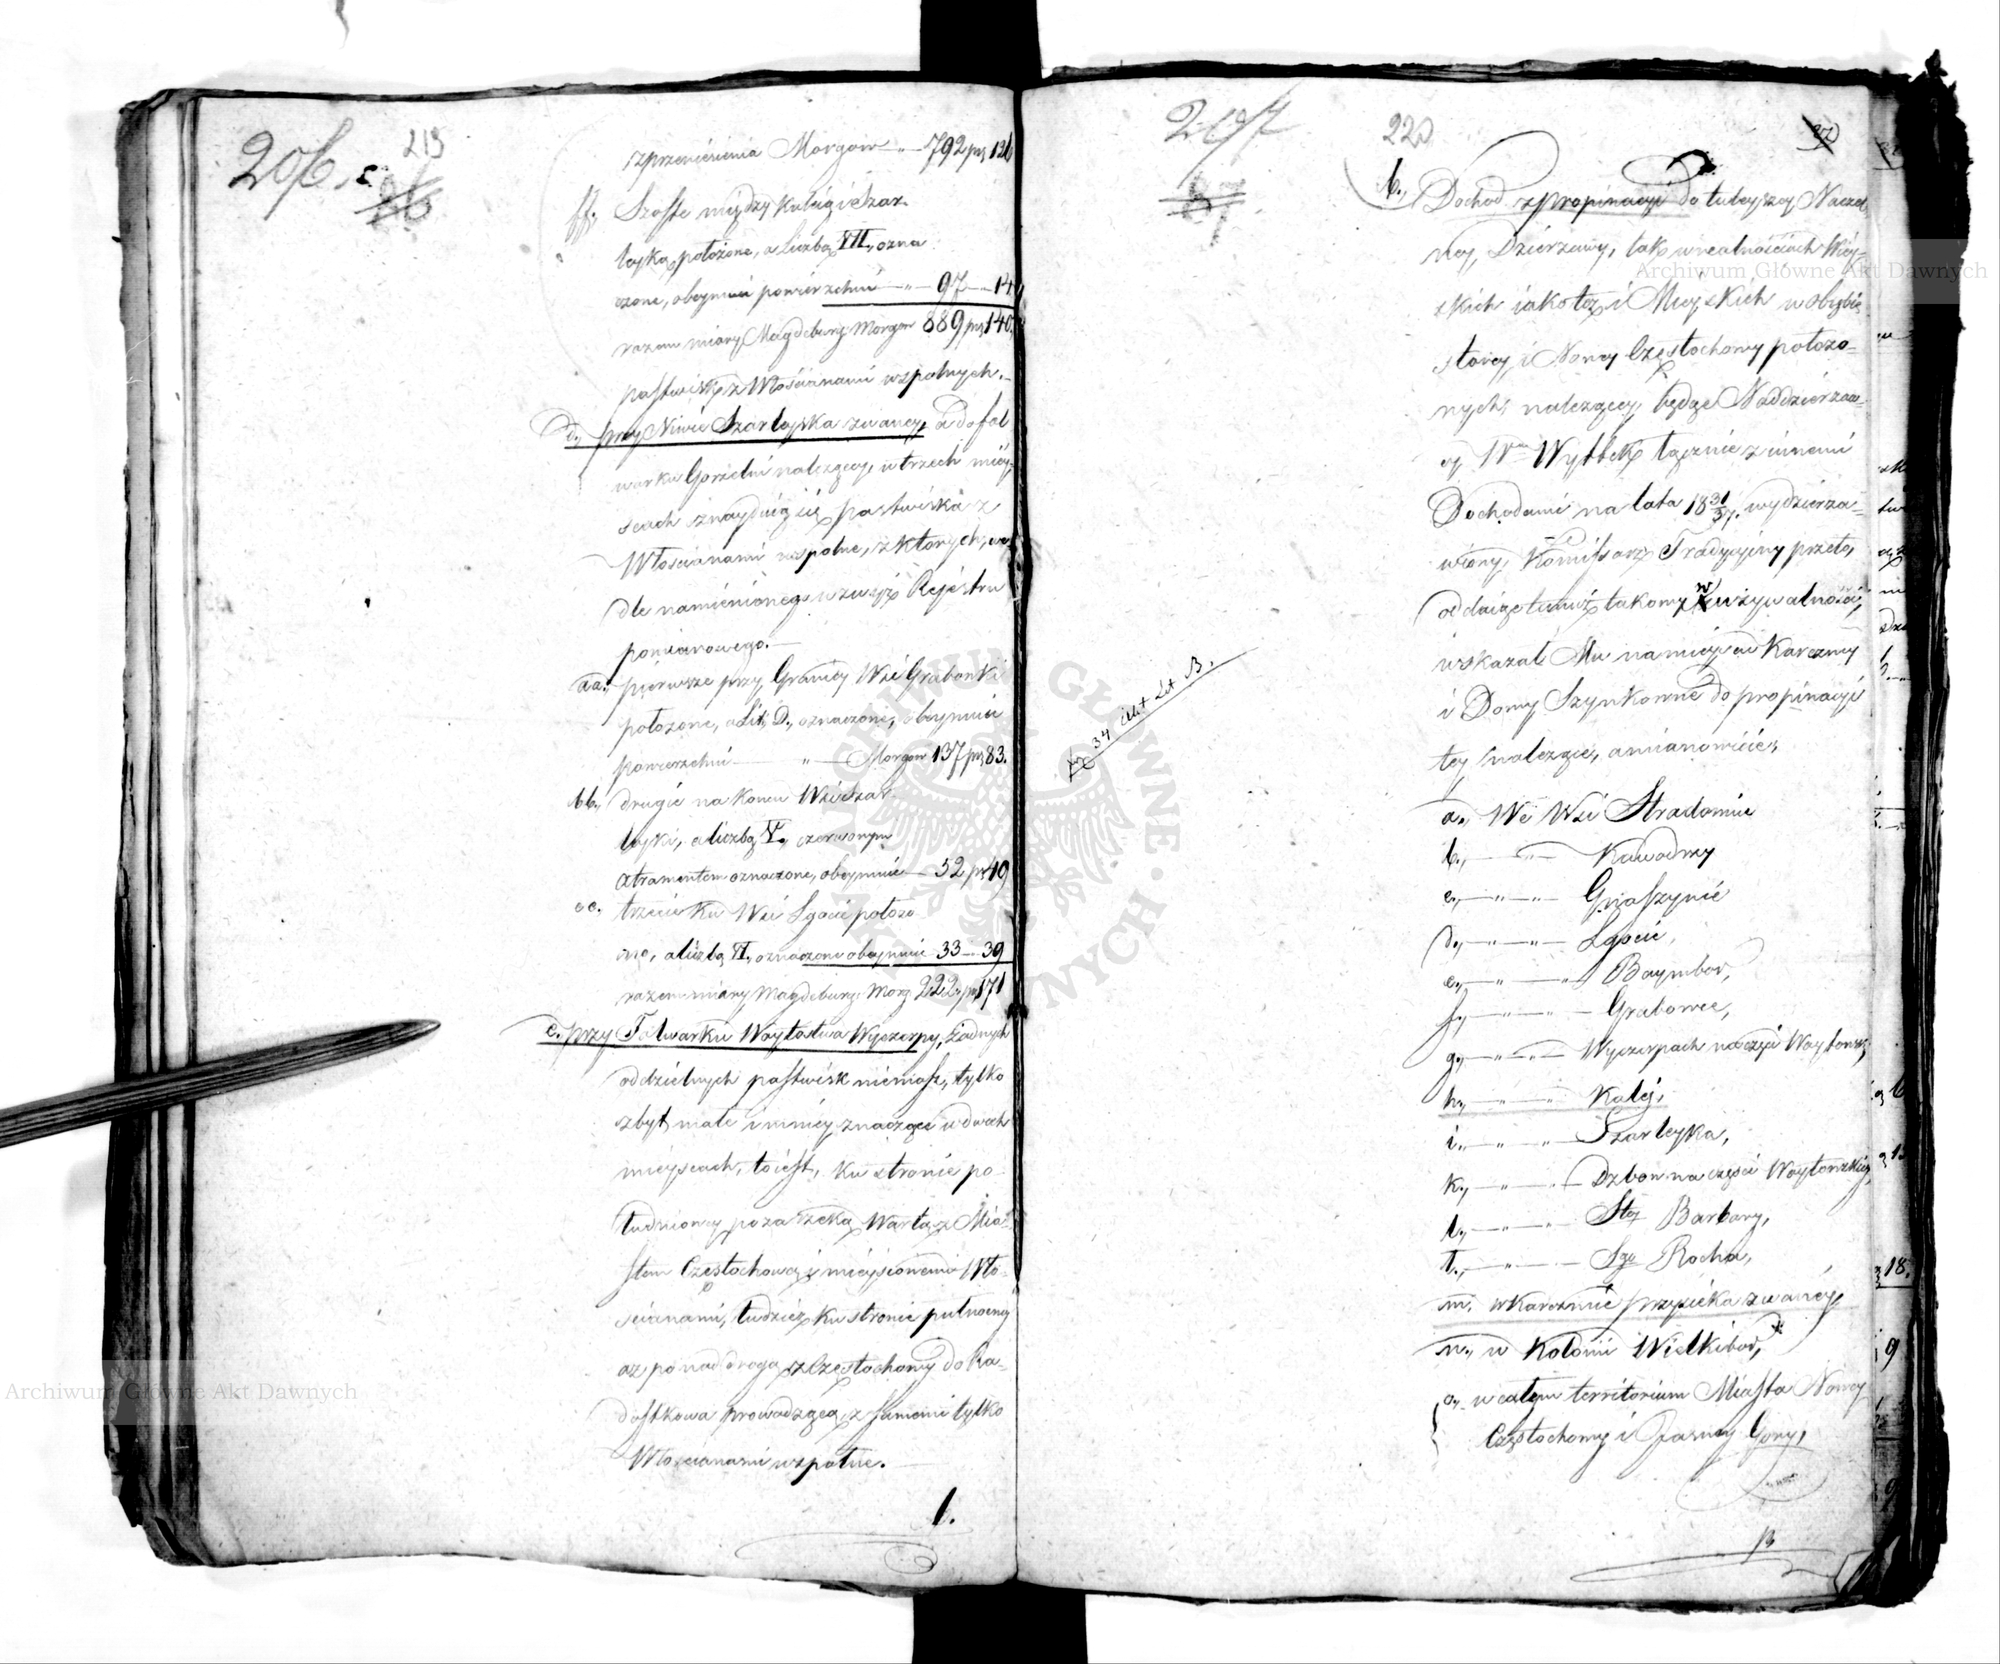 206.
219
zprzeniesienia Morgow " 792 p. 126
ff. Szoste między Kuleią i Szar-
leyką położone, a Liczbą VII, ozna-
czone, obeymuie powierzchni " 97 — 14
razem miary Magdeburg: Morgow 889 p. 140.
pastwisk z Włościanami wspolnych.
d, przy Niwie Szarleyska zwaney, a do fol
warku Gorzelni należącey, w trzech miey-
scach znayduią się pastwiska z
Włościanami wspolne, z ktorych, we-
dle namienionego uzwyż Rejestru
pomiarowego.—
aa., pierwsze przy Granicy Wsi Grabonki
położone, a Lit: D., oznaczone, obeymuie
powierzchni — " — Morgow 137 p. 83.
bb., drugie na Koncu Wsi Szar-
leyki, a liczbą V., czerwonym
atramentem oznaczone, obeymuie — 52 p. 49
cc. trzecie ku Wsi Lgocie położo
ne, a liczbą VI., oznaczone obeymuie 33 — 39
razem miary Magdeburg: Morg 222 p. 171
e. przy Folwarku Woytostwa Wyczerpy, żadnych
oddzielnych pastwisk niemasz, tylko
zbyt małe i mniey znaczące w dwoch
mieyscach, to iest, ku stronie po-
łudniowey poza rzeką Wartą z Mia-
stem Częstochową i mieyscowemi Wło-
scianami, tudzież ku stronie pułnocney
aż ponad drogą z Częstochowy do Ra-
dostkowa prowadzącą, z samemi tylko
Włoscianami wspolne.
b.
207
220
b., Dochod z propinacyi do tuteyszey Naczel
ney Dzierzawy, tak w realnościach Wiey-
skich iako też i Mieyskich w obrębie
starey i Nowey Częstochowy położo-
nych, należącey, będąc Naddzierzaw-
cy Wmu Wybbek łącznie z innemi
Dochodami na lata 1831/37. wydzierza-
wiony, Kommissarz Tradycyiny przeto,
oddaiąc temuż takowy w używalność,
wskazał Mu na mieyscu Karczmy
i Domy Szynkowne do propinacyi
tey należące, a mianowicie,
34 Lit B.
a., We Wsi Stradomiu
b., — " — Kawodrzy
c., — " — " — Gnaszynie
d., — " — " — Lgocie,
e., — " — " Baymbor,
f., — " — " — Grabowce,
g., — " — " — Wyczerpach na częsci Woytowsk.
h., — " — " Kuley,
i., — " — " Szarleyka,
k., — " — " — Dzbow na częsci Woytowskiey,
l., — " — " Stey Barbary,
ł., — " — Sgo Rocha,
m. w Karczmie przysieka zwaney,
n., w Kolonii Wielkibor,
o., w całem territorium Miasta Nowey
Częstochowy i Jasney Gory,